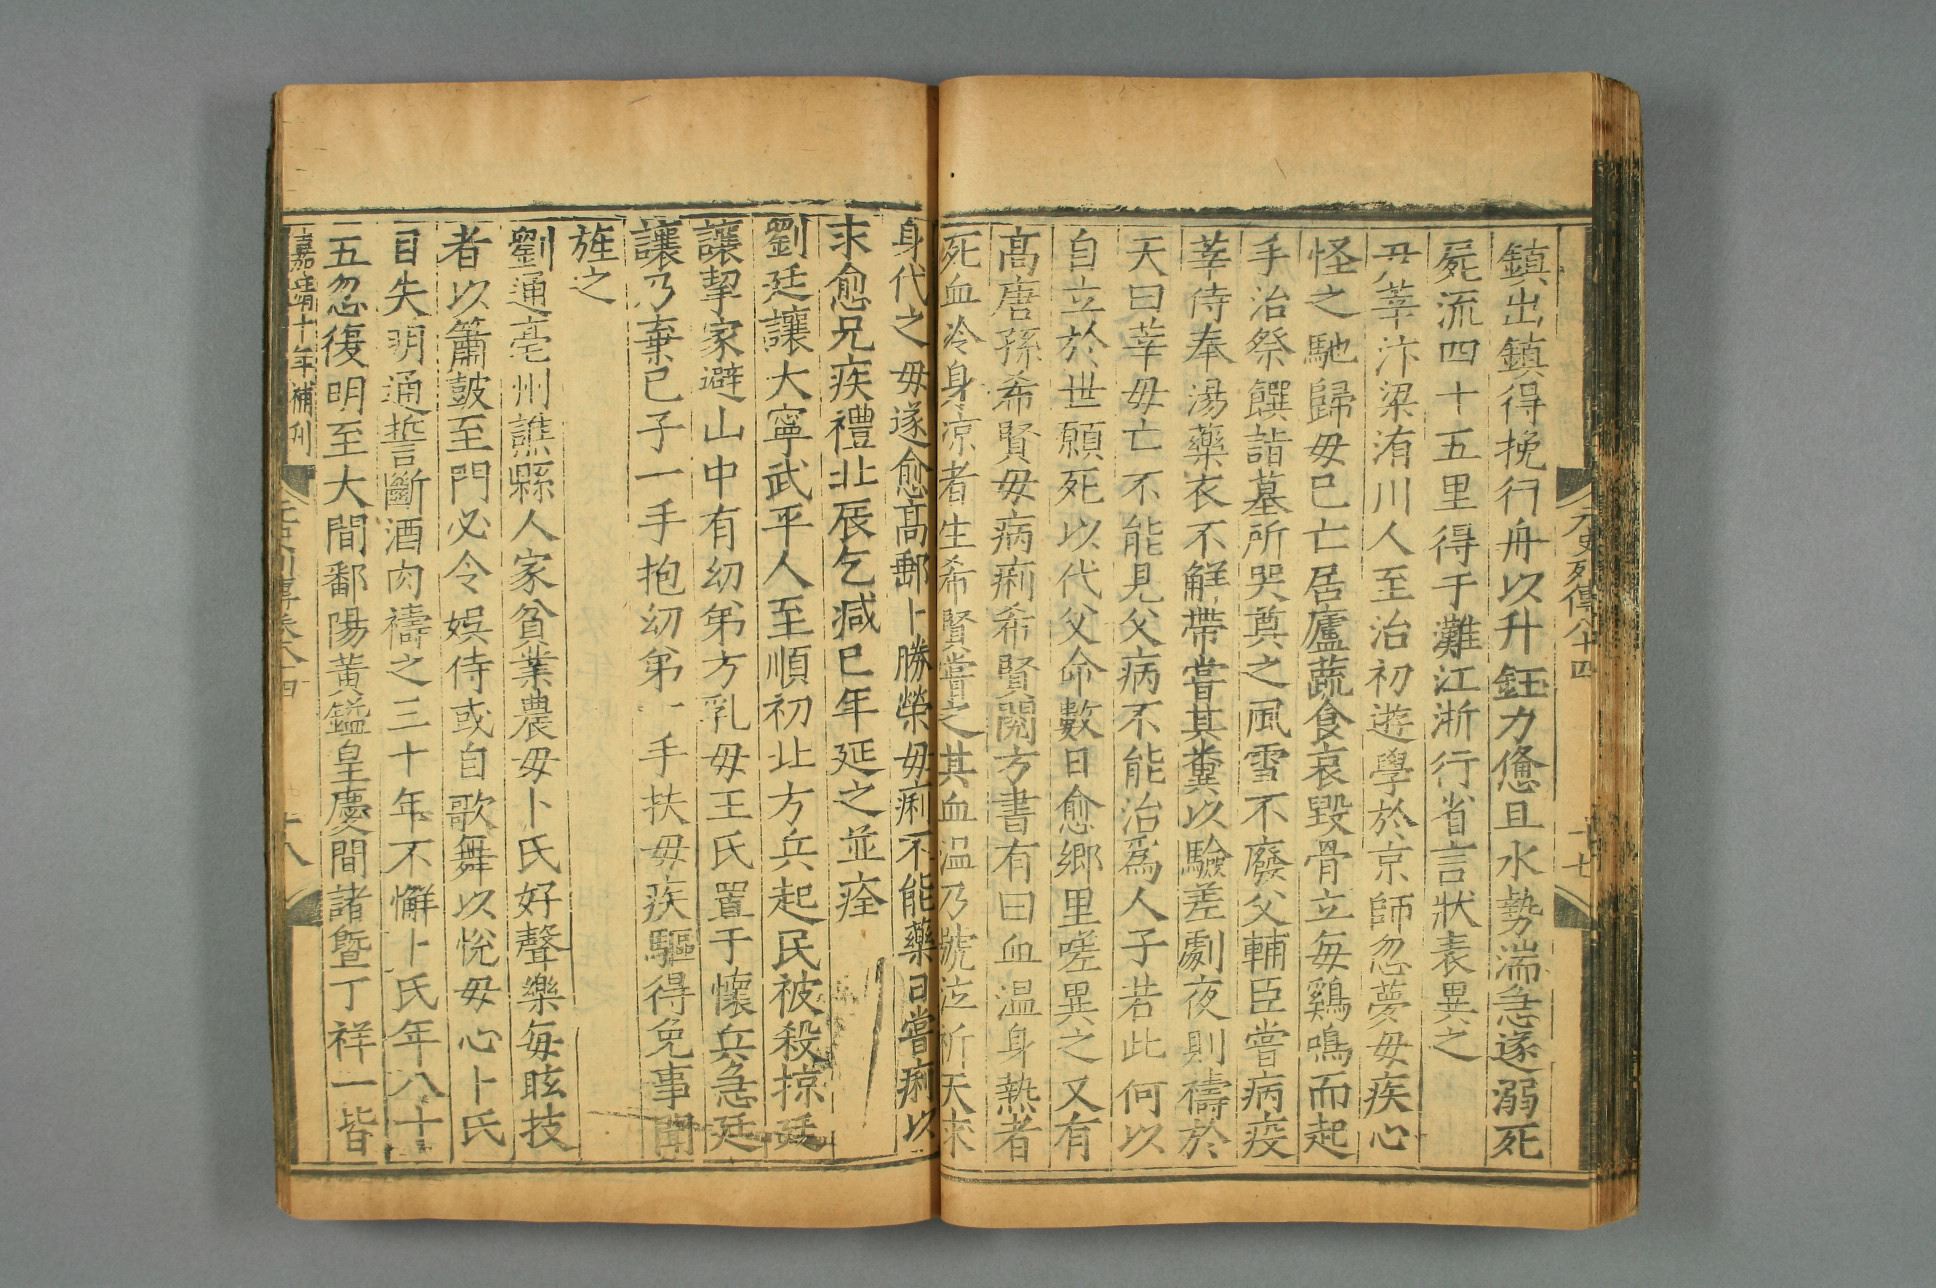 元史列傳八十四
十七
鎮出鎮得挽行舟以升鈺力憊且水勢湍急遂溺死
屍流四十五里得于灘江浙行省言狀表異之
丑莘汴梁洧川人至治初遊學於京師忽夢毋疾心
怪之馳歸毋已亡居廬蔬食哀毀骨立毎鷄鳴而起
手治祭饌詣墓所哭奠之風雪不廢父輔臣嘗病疫
莘侍奉湯藥衣不解帶嘗其糞以驗差劇夜則禱於
天曰莘毋亡不能見父病不能治爲人子若此何以
自立於世願死以代父命數日愈鄉里嗟異之又有
高唐孫希賢毋病痢希賢閱方書有曰血温身熱者
死血冷身凉者生希賢嘗之其血温乃號泣祈天求
身代之毋遂愈高郵卜勝榮毋痢不能藥日嘗痢以
求愈兄疾禮北辰乞减已年延之並痊
劉廷讓大寧武平人至順初北方兵起民被殺掠廷
讓挈家避山中有幼弟方乳毋王氏置于懷兵急廷
讓乃棄已子一手抱幼弟一手扶毋疾驅得免事聞
旌之
劉通亳州譙縣人家貧業農毋卜氏好聲樂毎眩技
者以簫鼓至門必令娯侍或自歌舞以悅毋心卜氏
目失明通誓斷酒肉禱之三十年不懈卜氏年八十
五忽復明至大間鄱陽黃鎰皇慶間諸曁丁祥一皆
嘉靖十年補刊
十八